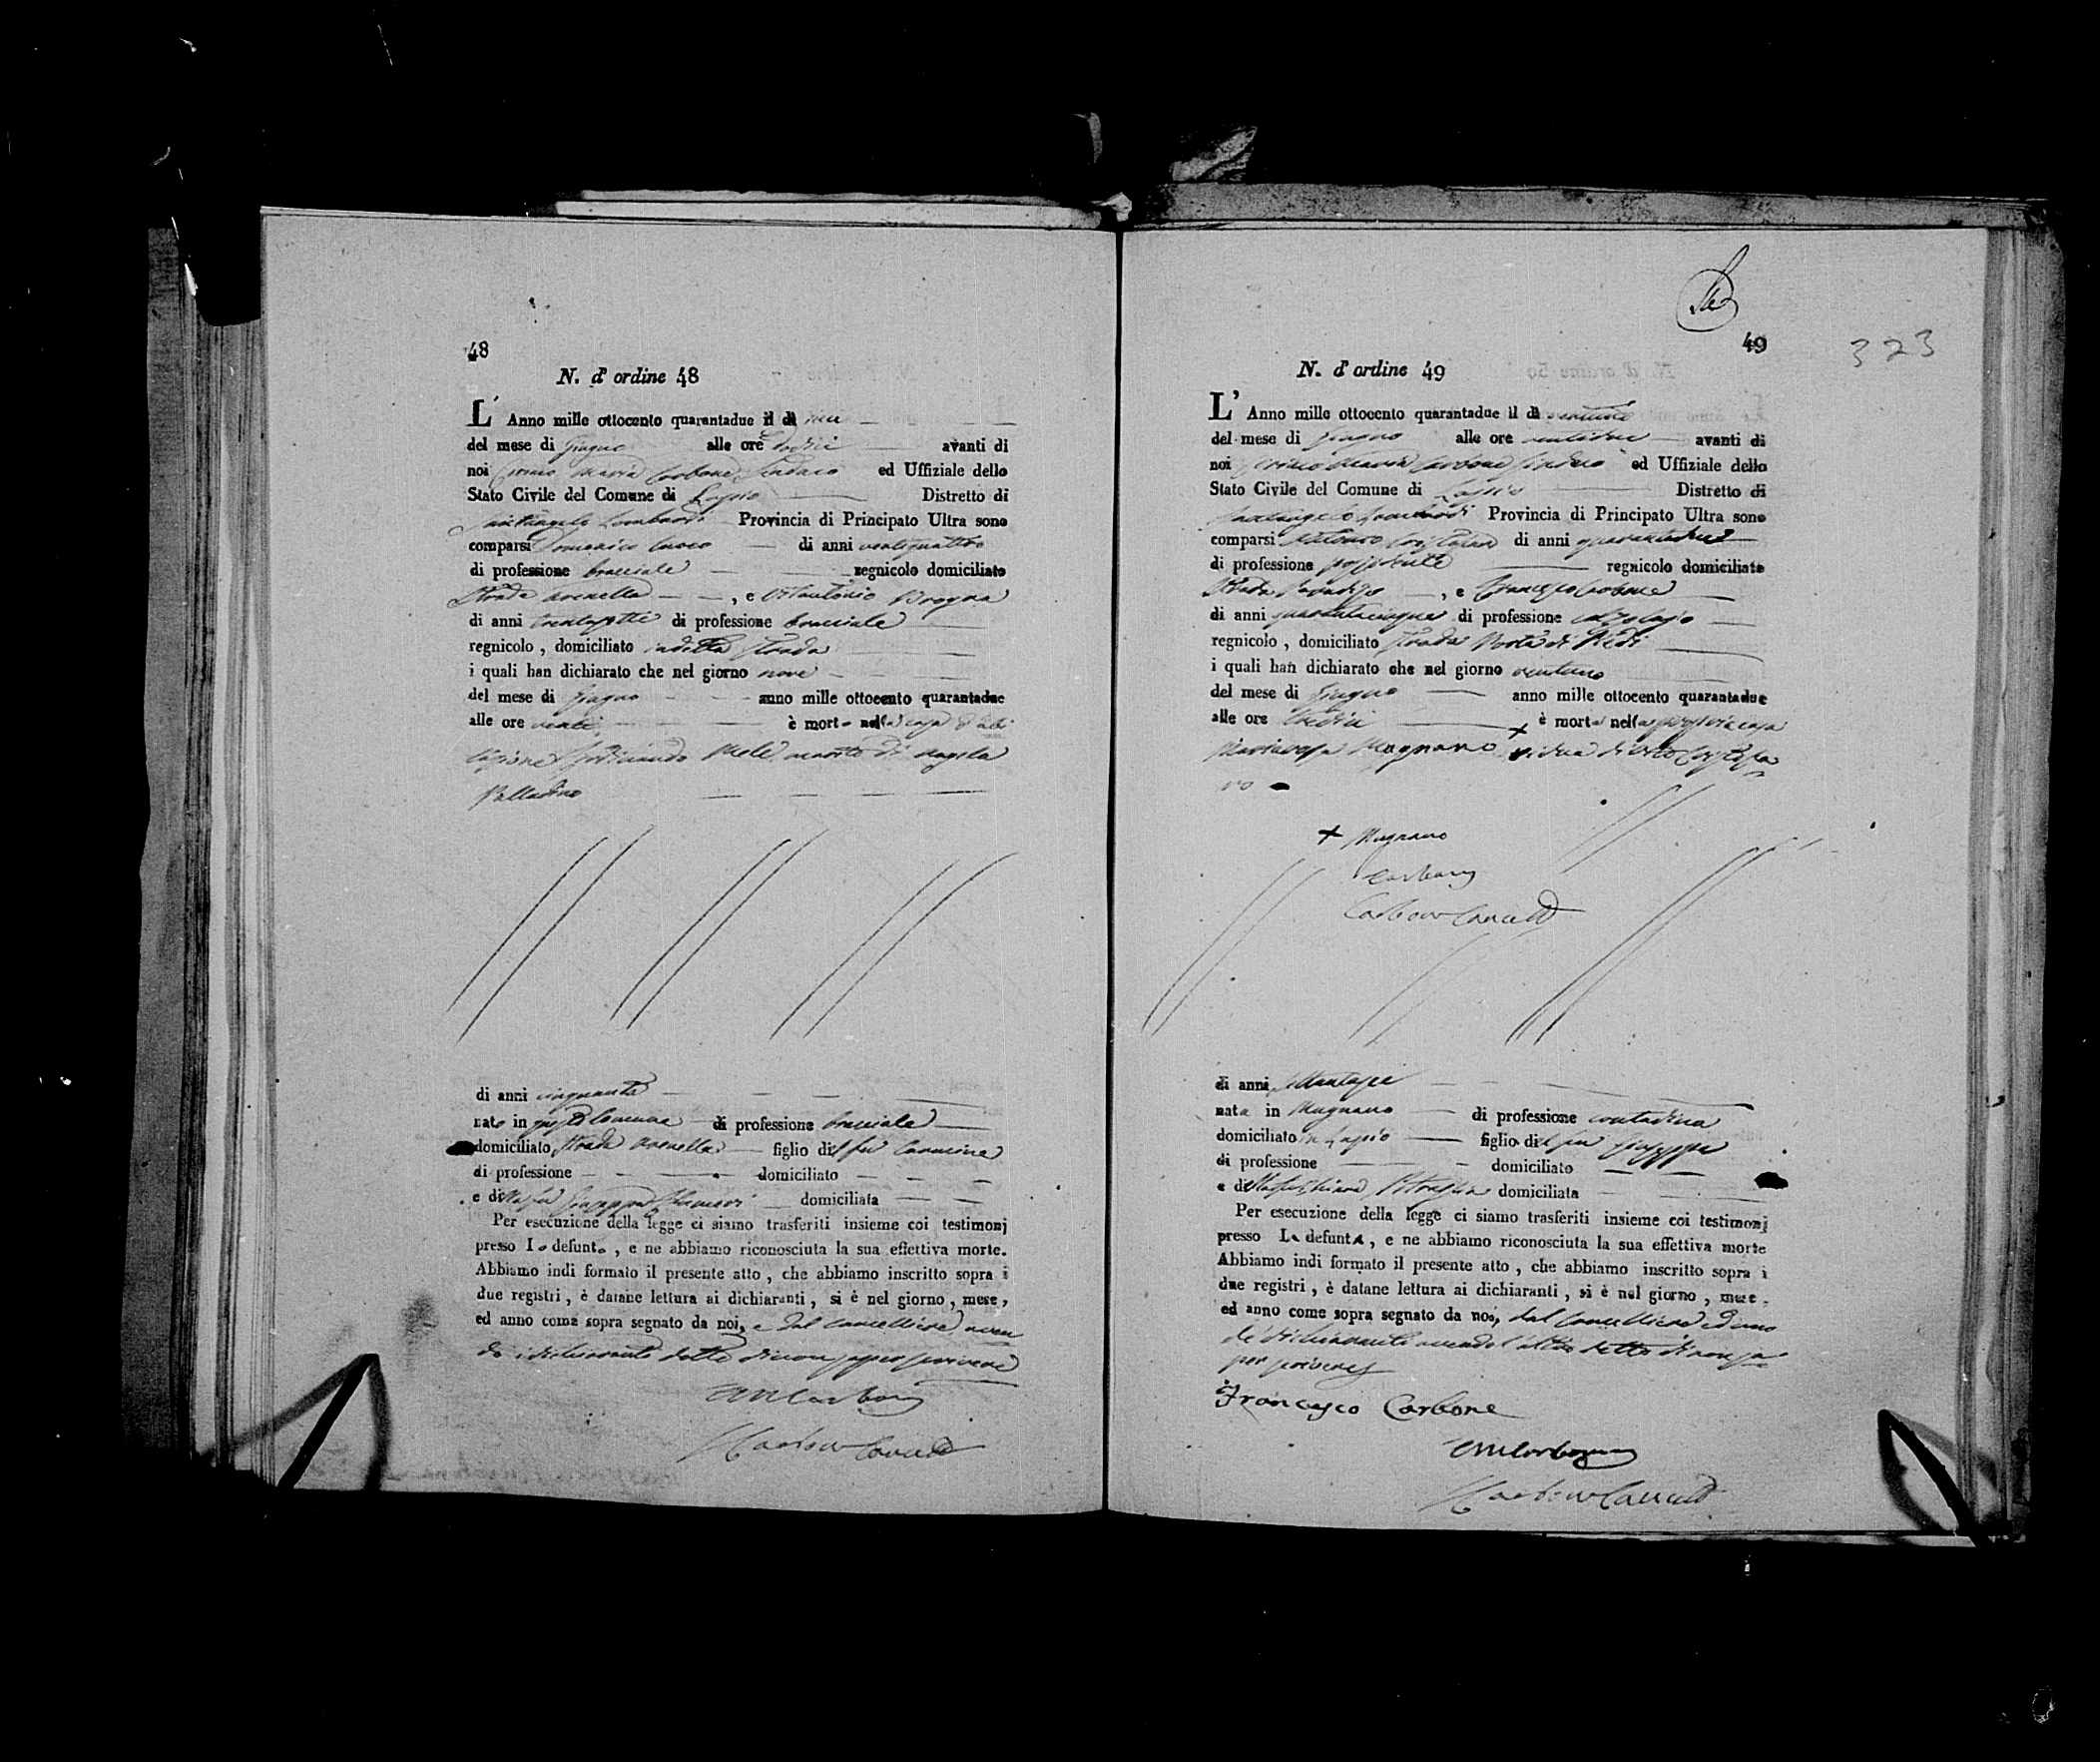 48
N. d' ordine 48
L' Anno mille ottocento quarantadue il dì
del mese di Giugno alle ore dodici avanti di
noi Ciriaco Maria Carbone Sindaco ed Uffiziale dello
Stato Civile del Comune di Lapio Distretto di
Santangelo Lombardi Provincia di Principato Ultra sono
comparsi Domenico di anni ventiquattro
di professione bracciale regnicolo domiciliato
Strada Arenella , e Vitantonio Brogna
di anni di professione bracciale
regnicolo , domiciliato in detta Strada
i quali han dichiarato che nel giorno nove
del mese di Giugno anno mille ottocento quarantadue
alle ore venti è morto nella casa d'abi
tazione Ferdinando Mele marito di Angela
Palladino
di anni cinquanta
nato in questo Comune di professione bracciale
domiciliato Strada Arenella figlio del fu Carmine
di professione domiciliato
e della fu Giuseppa domiciliata
Per esecuzione della legge ci siamo trasferiti insieme coi testimonj
presso Lo defunto , e ne abbiamo riconosciuta la sua effettiva morte.
Abbiamo indi formato il presente atto , che abbiamo inscritto sopra i
due registri , è datane lettura ai dichiaranti , si è nel giorno , mese ,
ed anno come sopra segnato da noi, e dal Cancelliere aven
do i dichiaranti detto di non saper scrivere
CMCarbone
Carbone Cancell
49
323
N. d' ordine 49
L' Anno mille ottocento quarantadue il dì ventuno
del mese di Giugno alle ore ventidue avanti di
noi Ciriaco Maria Carbone Sindaco ed Uffiziale dello
Stato Civile del Comune di Lapio Distretto di
Santangelo Lombardi Provincia di Principato Ultra sono
comparsi Antonio Cristofaro di anni quarantadue
di professione possidente regnicolo domiciliato
Strada Paradiso , e Francesco Carbone
di anni quarantacinque di professione calzolajo
regnicolo , domiciliato Strada Porta di
i quali han dichiarato che nel giorno ventuno
del mese di Giugno anno mille ottocento quarantadue
alle ore tredici è morta nella propria casa
Mariarosa Mugnano vidua di Vito Cristofa
ro
+ Mugnano
Carbone
Carbone Cancell
di anni settantasei
nata in Mugnano di professione contadina
domiciliato in Lapio figlia del fu Giuseppe
di professione domiciliato
e della fu domiciliata
Per esecuzione della legge ci siamo trasferiti insieme coi testimonj
presso La defunta , e ne abbiamo riconosciuta la sua effettiva morte
Abbiamo indi formato il presente atto , che abbiamo inscritto sopra i
due registri , è datane lettura ai dichiaranti , si è nel giorno , mese ,
ed anno come sopra segnato da noi, dal Cancelliere ed uno
de' dichiaranti avendo l'altro detto di non sa
per scrivere
Francesco Carbone
CMCarbone
Carbone Cancell